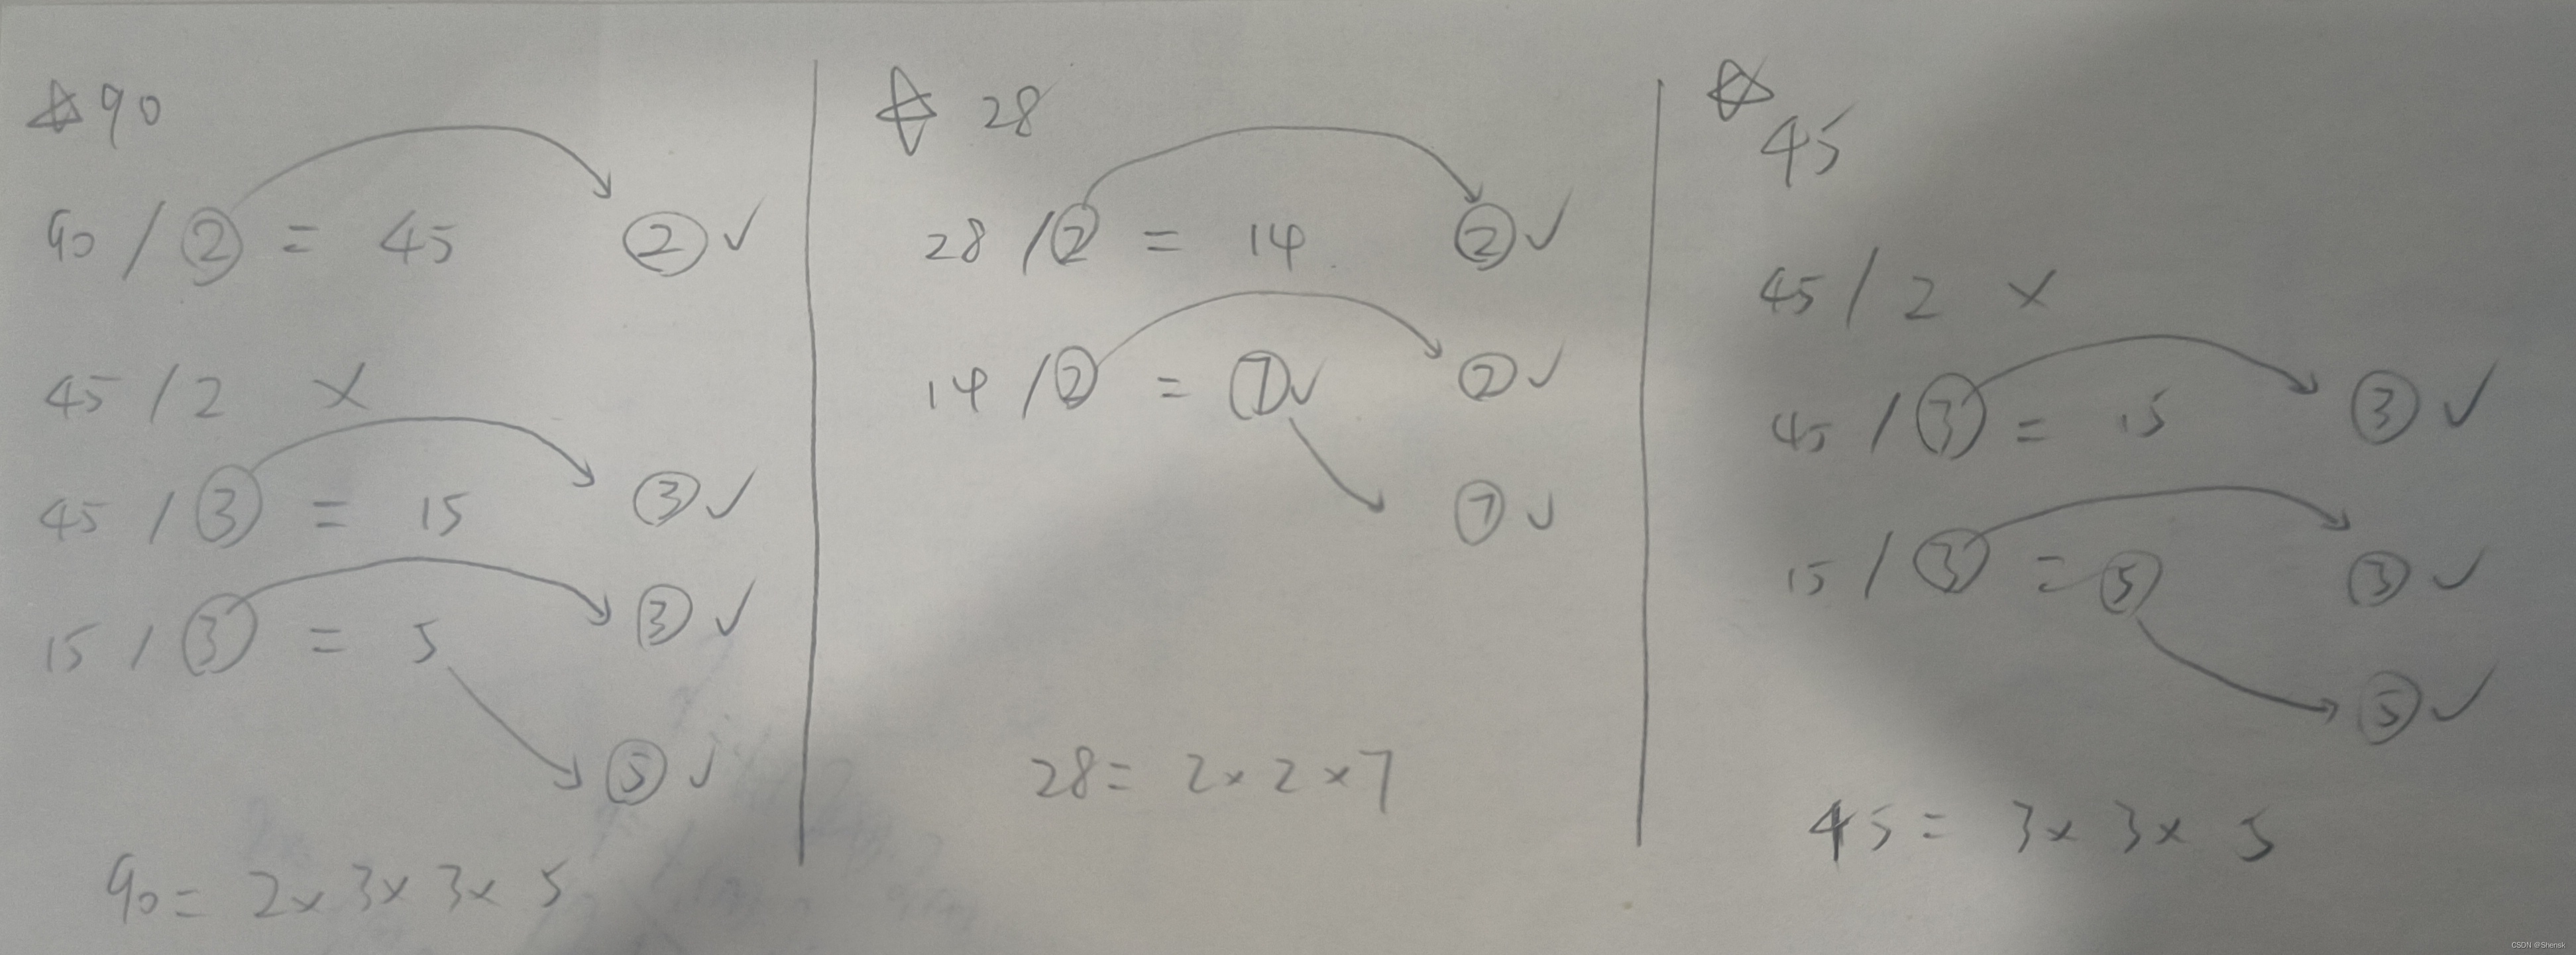 ☆ 90
90 / ② = 45 ② ✓
45 / 2 ×
45 / ③ = 15 ③ ✓
15 / ③ = 5 ③ ✓
⑤ ✓
90 = 2 × 3 × 3 × 5
☆ 28
28 / ② = 14 ② ✓
14 / ② = ⑦ ✓ ② ✓
⑦ ✓
28 = 2 × 2 × 7
☆
45
45 / 2 ×
45 / ③ = 15 ③ ✓
15 / ③ = ⑤ ③ ✓
⑤ ✓
45 = 3 × 3 × 5
CSDN @Shensk